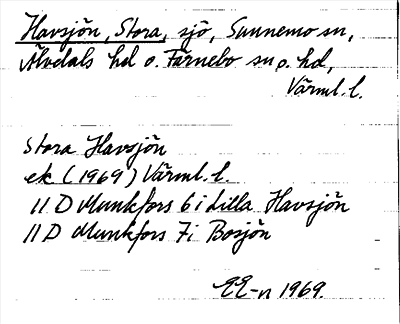 Havsjön, Stora, sjö, Sunnemo sn,
Älvdals hd o. Färnebo sn o. hd,
Värml. l.
Stora Havsjön
ek (1969) Värml. l.
11 D Munkfors 6 i Lilla Havsjön
11 D Munkfors 7 i Bosjön
EE-n 1969.